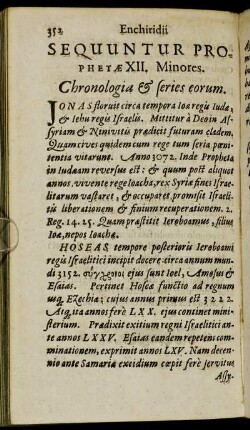 352 Enchiridii
SEQUUNTUR PRO-
PHETÆ XII. Minores.
Chronologia & series eorum.
JONAS floruit circa tempora Ioa regis Iudæ,
& Iehu regis Israelis. Mittitur à Deo in As-
syriam & Ninivitis prædicit futuram cladem.
Quam cives quidem cum rege tum seria pœni-
tentia vitarunt. Anno 3072. Inde Propheta
in Iudæam reversus est: & quum post aliquot
annos, vivente rege Ioacha, rex Syriæ fines Israe-
litarum vastaret, & occuparet, promisit Israeli-
tis liberationem & finium recuperationem. 2.
Reg. 14. 25. Quam præstitit Ieroboamus, filius
Ioæ, nepos Ioachæ.
HOSEAS, tempore posterioris Ieroboami
regis Israelitici incipit docere, circa annum mun-
di 3152. σύγχρονοι ejus sunt Ioel, Amosus &
Esaias. Pertinet Hoseæ functio ad regnum
usq; Ezechiæ; cujus annus primus est 3222.
Atq; ita annos ferè LXX. ejus continet mini-
sterium. Prædixit exitium regni Israelitici an-
te annos LXXV. Esaias eandem repetens com-
minationem, exprimit annos LXV. Nam decen-
nio ante Samariæ excidium cœpit ferè jervitus
Assy-